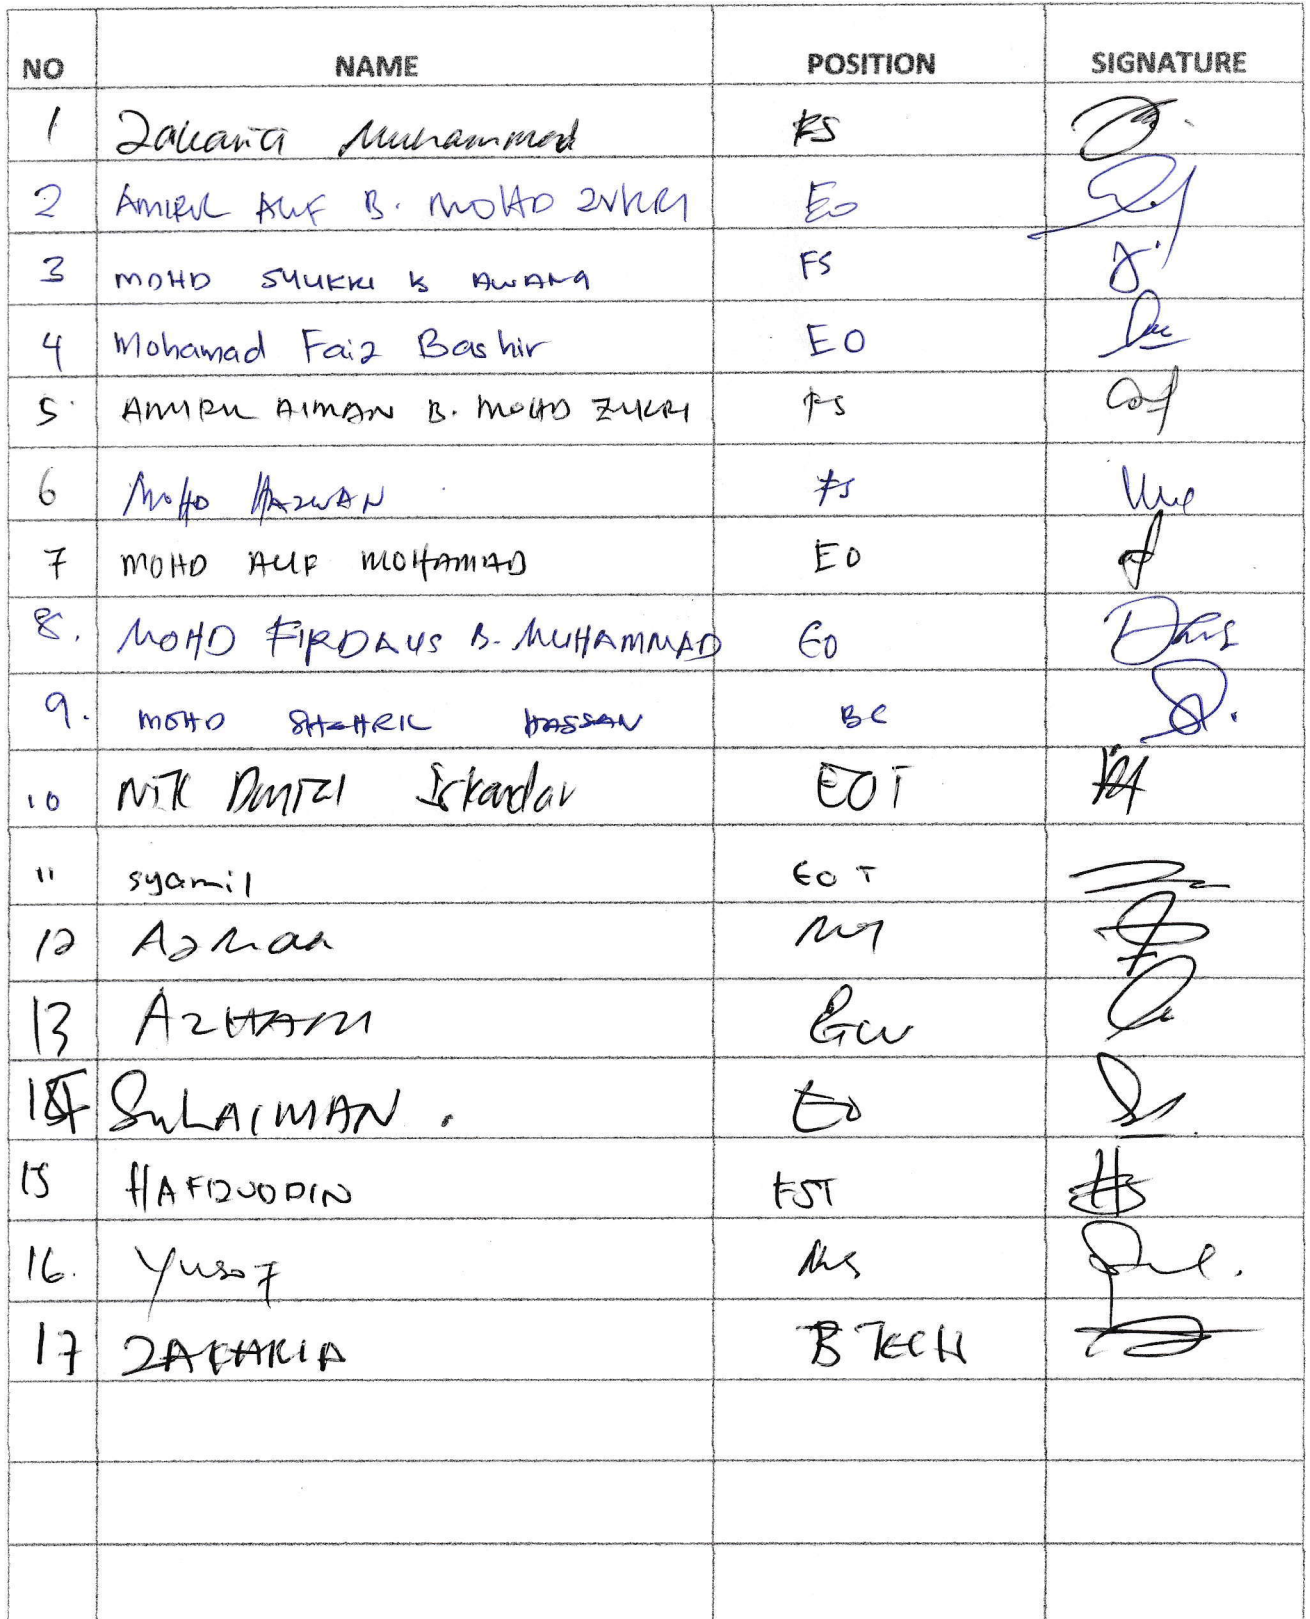 NO NAME POSITION SIGNATURE
1 Zakaria Muhammad FS
2 AMIRUL ALIF B. MOHD ZUKRI EO
3 MOHD SYUKRI B AWANG FS
4 Mohamad Faiz Bashir EO
5 AMIRUL AIMAN B. MOHD ZUKRI FS
6 MOHD HAZWAN FS
7 MOHD ALIF MOHAMAD EO
8. MOHD FIRDAUS B. MUHAMMAD EO
9. MOHD SHAHRIL HASSAN BC
10 NIK Daniel Iskandar EOT
11 syamil EOT
12
13 AZHARI
14 SULAIMAN. EO
15 HAFIZUDDIN FST
16. Yusof
17 ZAKARIA B TECH